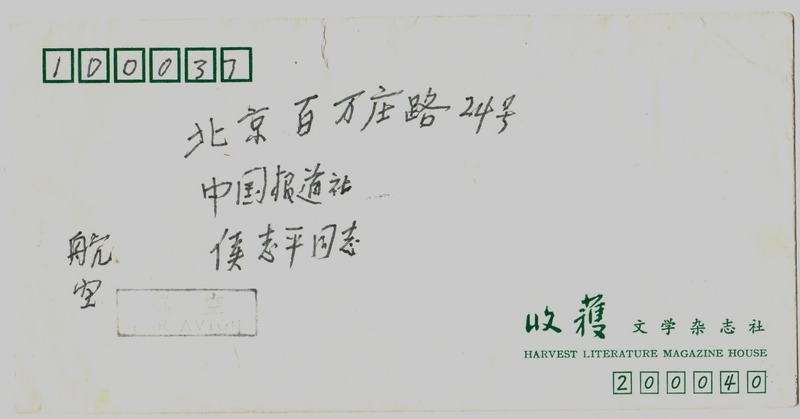 100037
北京百万庄路24号
中国报道社
侯志平同志
航
空
航空
PAR AVION
收穫 文学杂志社
HARVEST LITERATURE MAGAZINE HOUSE
200040